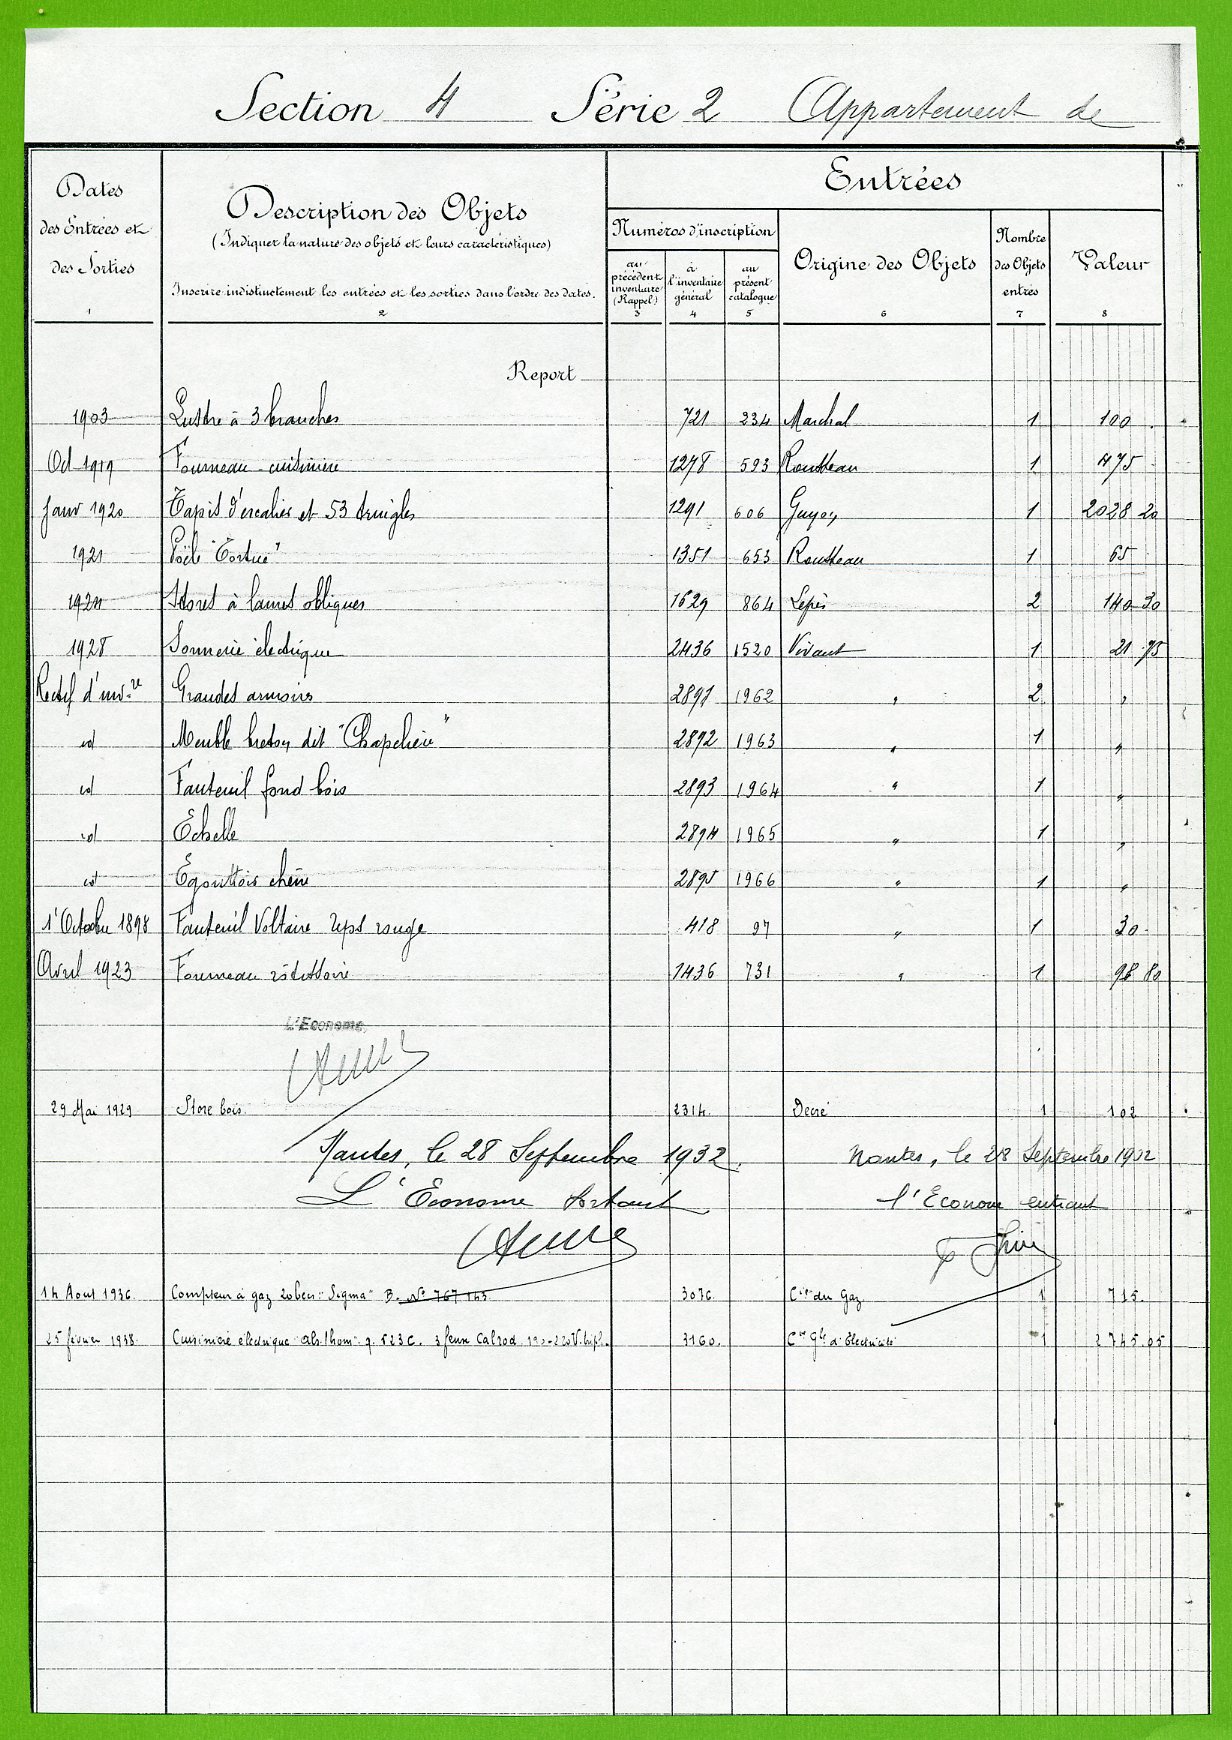 Section 4 Série 2 Appartement de
Dates des Entrées et des Sorties
1
Description des Objets
(Indiquer la nature des objets et leurs caractéristiques)
Inscrire indistinctement les entrées et les sorties dans l'ordre des dates.
2
Entrées
Numéros d'inscription
au précédent inventaire (Rappel)
3
à l'inventaire général
4
au présent catalogue
5
Origine des Objets
6
Nombre des Objets entrés
7
Valeur
8
Report
1903 Lustre à 3 branches 721 234 Marchal 1 100
Oct 1919 Fourneau cuisinière 1278 593 Rousseau 1 475
Janv 1920 Tapis d'escalier et 53 tringles 1291 606 Guyon 1 2028 20
1921 Poële "Tortue" 1351 653 Rousseau 1 65
1924 Stores à lames obliques 1629 864 2 140 30
1928 Sonnerie électrique 2436 1520 Vivant 1 21 75
Rectif d'inv.re Grandes armoires 2891 1962 " 2 "
id Meuble breton dit "Chapelière" 2892 1963 " 1 "
id Fauteuil fond bois 2893 1964 " 1 "
id Echelle 2894 1965 " 1 "
id Egouttoir chêne 2895 1966 " 1 "
1r Octobre 1898 Fauteuil Voltaire reps rouge 418 97 " 1 30
Avril 1923 Fourneau rôtissoire 1436 731 " 1 98 80
L'Econome
29 Mai 1929 Store bois 2314 Decré 1 102
Nantes, le 28 Septembre 1932. Nantes, le 28 Septembre 1932
L'Econome sortant l'Econome entrant
14 Aout 1936 Compteur à gaz 20 becs "Sigma" B. N° 767 143 3076 Cie du Gaz 1 715.
25 février 1938 Cuisinière électrique Als.thom 523C. 3 feux Calrod 3160. Cie Gle d'Electricité 1 2745.05